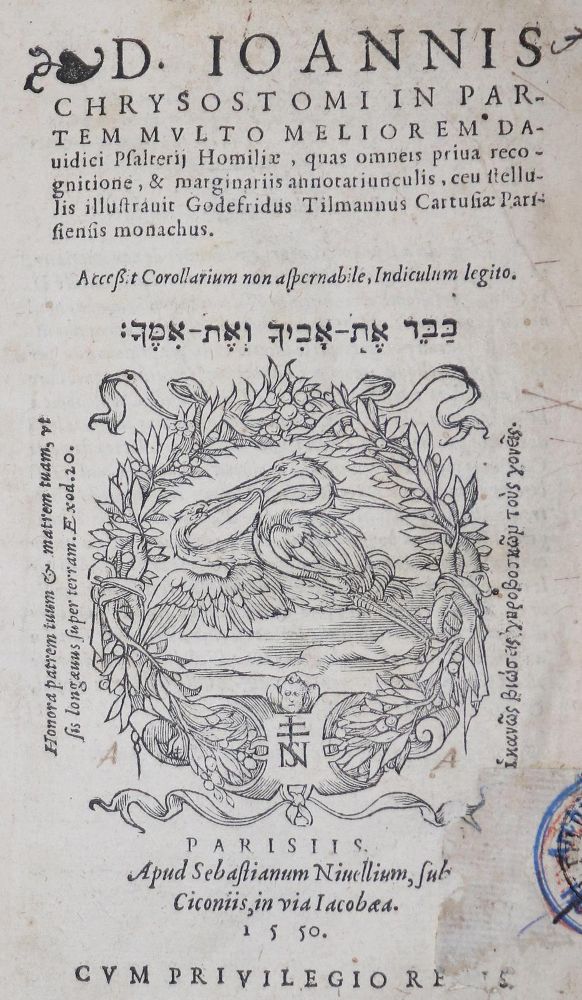 D. IOANNIS
CHRYSOSTOMI IN PAR-
TEM MVLTO MELIOREM DA-
uidici Psalterij Homiliæ, quas omneis priua reco-
gnitione, & marginariis annotatiunculis, ceu stellu-
lis illustrauit Godefridus Tilmannus Cartusiæ Pari-
siensis monachus.
Accessit Corollarium non aspernabile, Indiculum legito.
כַּבֵּד אֶת־אָבִיךָ וְאֶת־אִמֶּךָ׃
Honora patrem tuum & matrem tuam, vt
sis longæuus super terram. Exod. 20.
NS
A
A
PARISIIS.
Apud Sebastianum Niuellium, sub
Ciconiis, in via Iacobæa.
1550.
CVM PRIVILEGIO